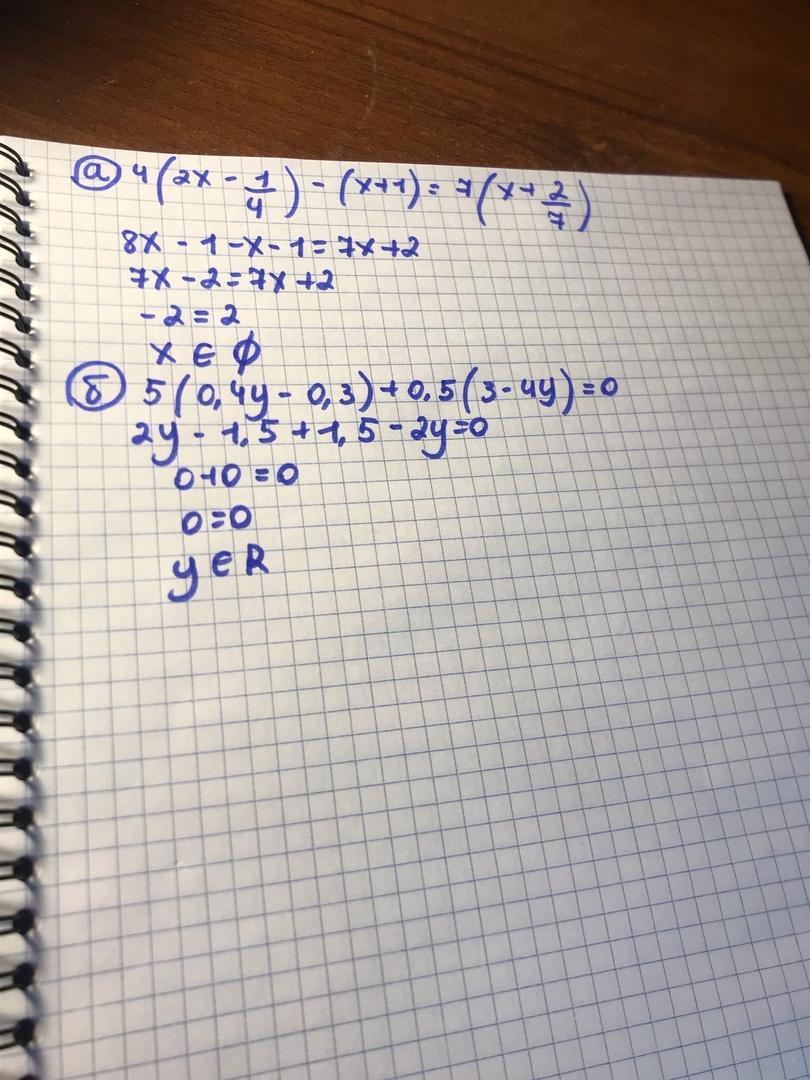 а) 4(2x - 1/4) - (x+1) = 7(x + 2/7)
8x - 1 - x - 1 = 7x + 2
7x - 2 = 7x + 2
-2 = 2
x ∈ ∅
б) 5(0,4y - 0,3) + 0,5(3 - 4y) = 0
2y - 1,5 + 1,5 - 2y = 0
0+0 = 0
0 = 0
y ∈ R